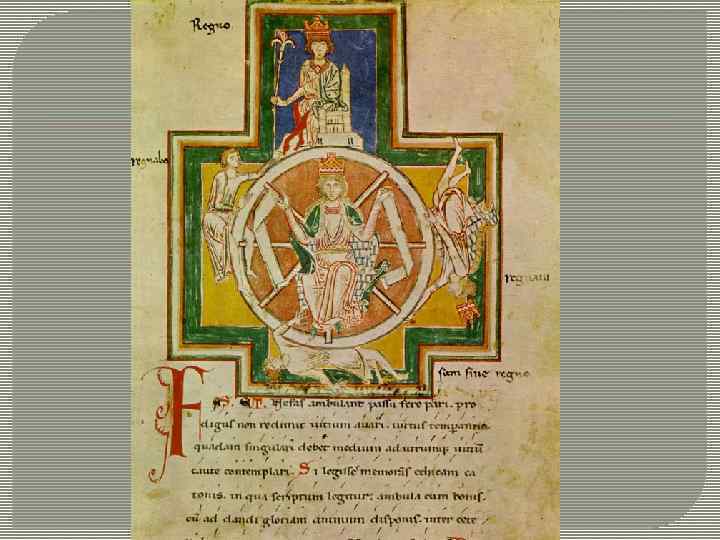 Regno
regnabo
regnavi
sum sine regno
Fas & Nefas ambulant passu fere pari. pro
digus non redimit uitium auari. uirtus temperantia
quadam singulari debet medium ad utrumque uitiū
caute contemplari. Si legisse memoras ethicam ca
tonis. in qua scriptum legitur: ambula cum bonis.
cū ad dandi gloriam animum disponis. inter cete